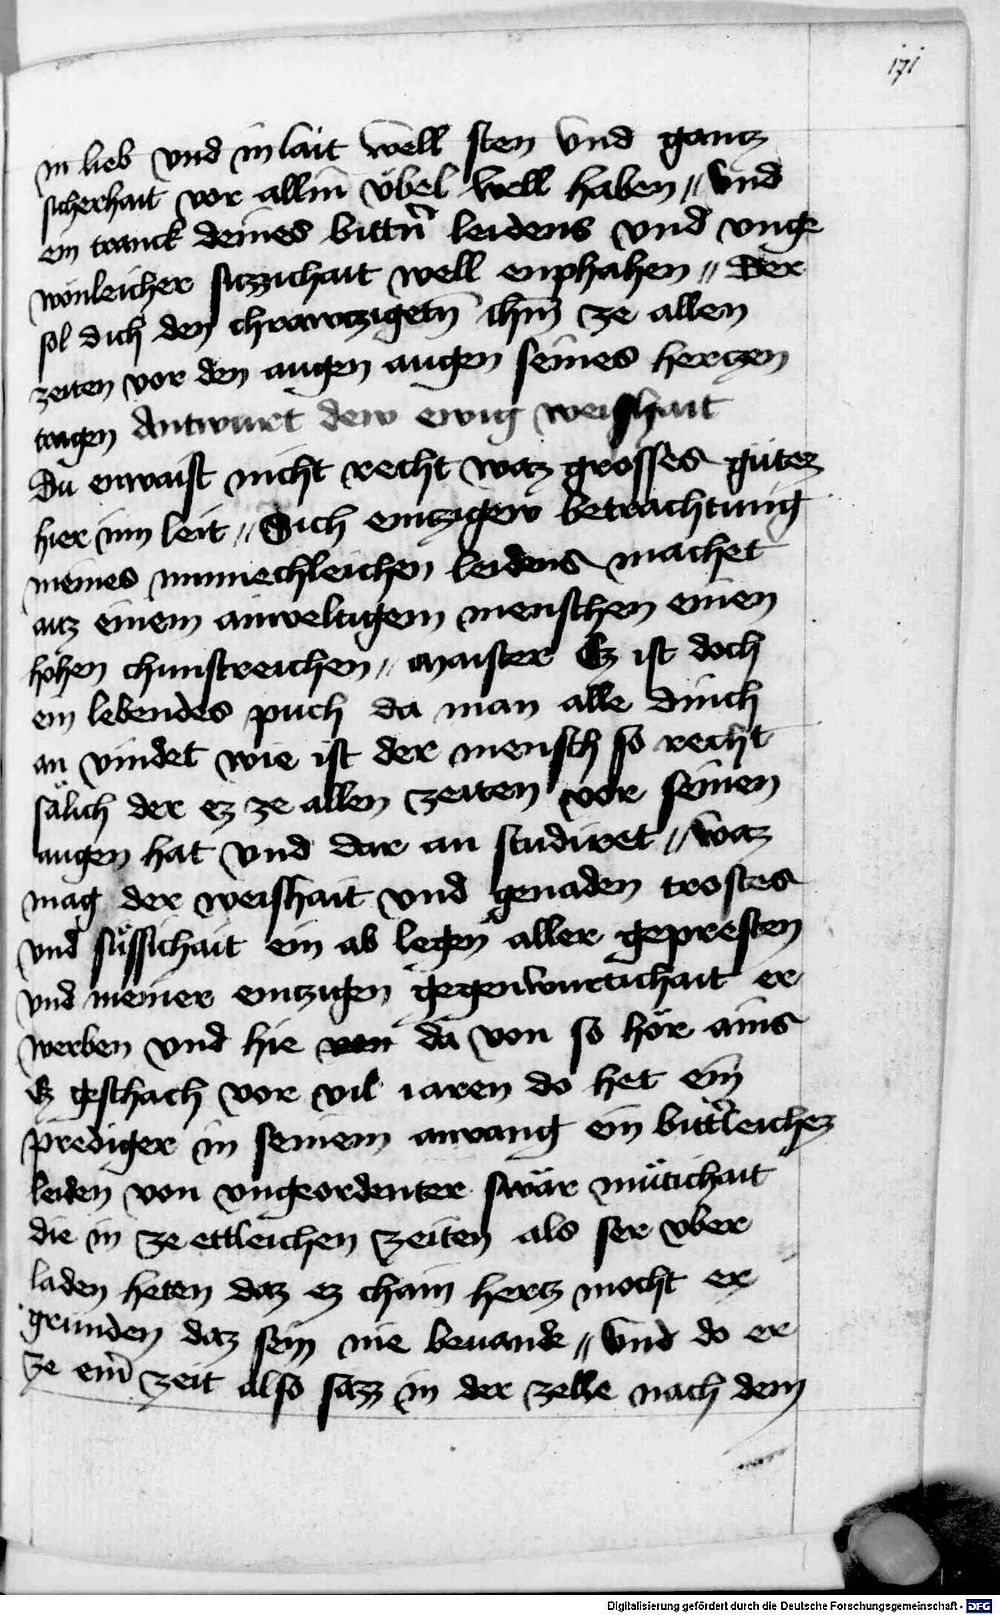 171
in lieb vnd in lait well sten vnd gancz
sicherhait vor allm̄ v̈bel well haben // vnd
ein tranck deines bittn̄ leidens vnd vnge
wonleicher suzzichait well enphahen // Der
sol dich den chrawczigetn̄ ihm̄ ze allen
zeiten vor den augen augen seines herczen
tragen Antwurt dew ewig weishait
Du enwaist nicht recht waz grosses gütez
hier inn leit // Sich emczigew betrachtung
meines minnechleichen leidens machet
auz einem ainveltigem menschen einen
hohen chunstreichen // maister Ez ist doch
ein lebendes puch da man alle dinch
an vindet wie ist der mensch so recht
sälich der ez ze allen zeiten vor seinen
augen hat vnd dar an studiret // waz
mag der weishait vnd genaden trostes
vnd süssichait ein ab legen aller gepresten
vnd meiner emczigen gegenwurtichait er
werben vnd hie von da von so hör ains
Ez geschach vor vil iaren do het ein
prediger in seinem anvang ein bittleichez
leiden von vngeordenter swär mütichait
die in ze ettleichen zeiten als ser vber
laden heten daz ez chain hercz mocht er
grunden daz sein nie bevande // vnd do er
ze eim̄ zeit also sazz in der zelle nach dem
Digitalisierung gefördert durch die Deutsche Forschungsgemeinschaft - DFG